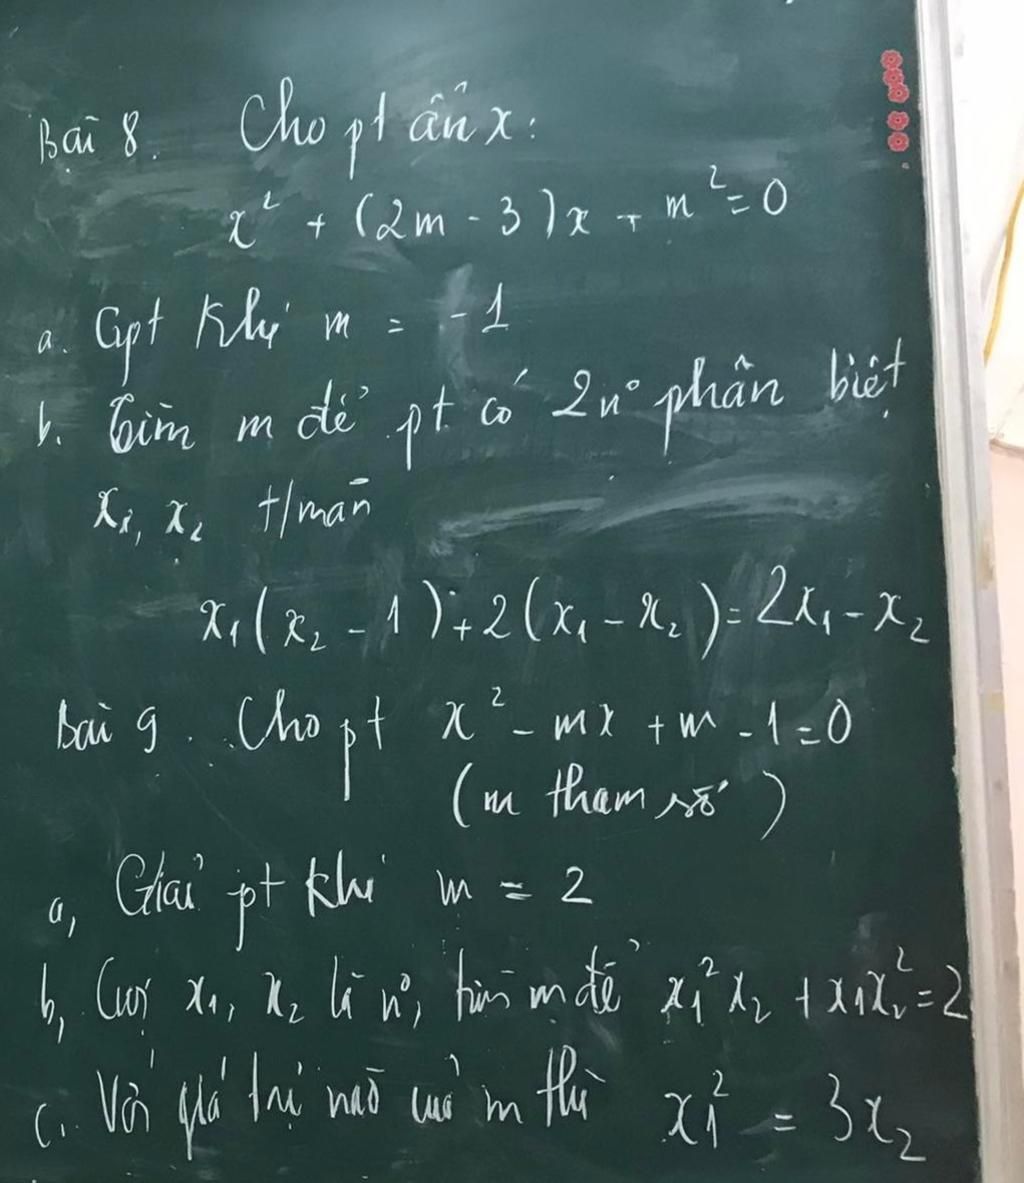 Bài 8. Cho pt ẩn x:
x² + (2m - 3)x + m² = 0
a. Gpt khi m = -1
b. Tìm m để pt có 2 n° phân biệt
x₁, x₂ t/mãn
x₁(x₂ - 1) + 2(x₁ - x₂) = 2x₁ - x₂
Bài 9. Cho pt x² - mx + m - 1 = 0
(m tham số)
a, Giải pt khi m = 2
b, Gọi x₁, x₂ là n°, tìm m để x₁²x₂ + x₁x₂² = 2
c. Với giá trị nào của m thì x₁² = 3x₂